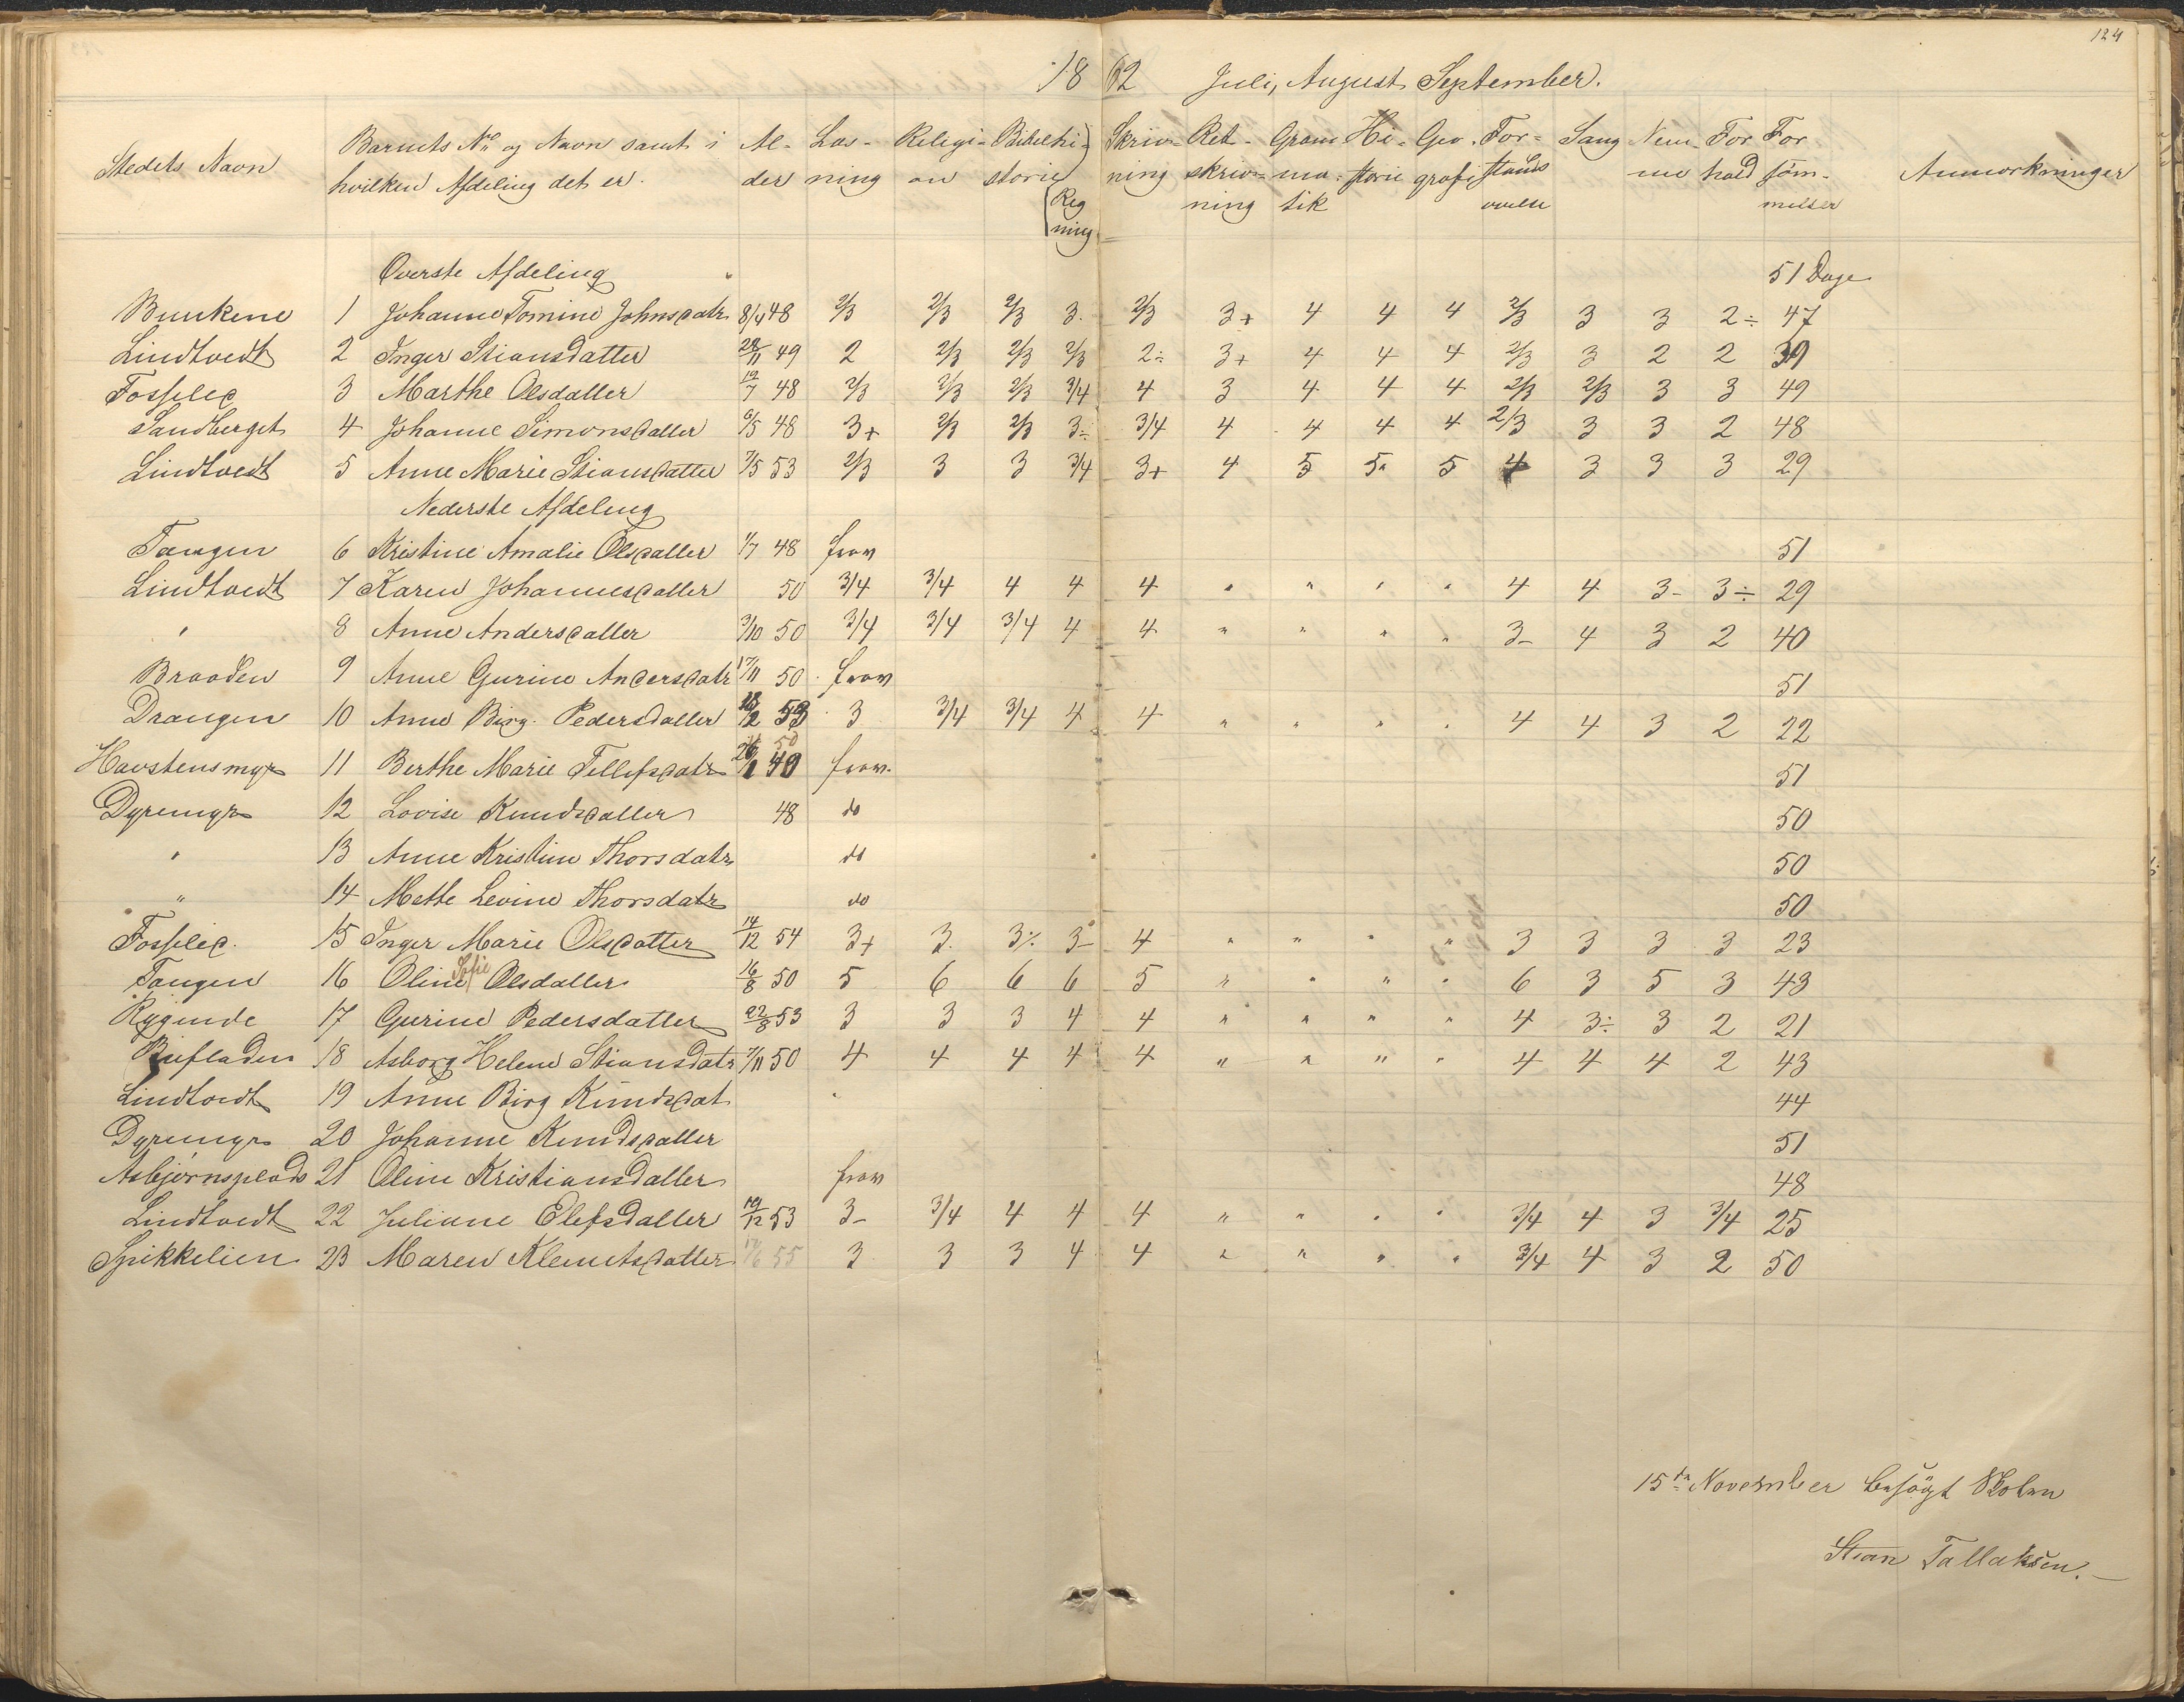 124
1862 Juli, August September.
Stedets Navn | Barnets No og Navn samt i hvilken Afdeling det er. | Al-der | Læs-ning | Religi-on | Bibelhi-storie | Reg ning | Skriv-ning | Ret-skriv-ning | Gram-ma-tik | Hi-storie | Geo-grafi | For-stands øvelse | Sang | Nem-me | For hold | For söm-melser | Anmærkninger
Øverste Afdeling 51 Dage
1 Johanne Tomine Johnsdatr. 8/4 48 2/3 2/3 2/3 3. 2/3 3+ 4 4 4 2/3 3 3 2÷ 47
Lindtvedt 2 Inger Stiansdatter 28/11 49 2 2/3 2/3 2/3 2÷ 3+ 4 4 4 2/3 3 2 2 39
Fosselie 3 Marthe Olsdatter 12/7 48 2/3 2/3 2/3 3/4 4 3 4 4 4 2/3 2/3 3 3 49
Sandberget 4 Johanne Simonsdatter 6/5 48 3+ 2/3 2/3 3÷ 3/4 4 4 4 4 2/3 3 3 2 48
Lindtvedt 5 Anne Marie Stiansdatter 7/5 53 2/3 3 3 3/4 3+ 4 5 5 5 4 3 3 3 29
Nederste Afdeling
Tangen 6 Kristine Amalie Olsdatter 1/7 48 frav 51
Lindtvedt 7 Karen Johannesdatter 50 3/4 3/4 4 4 4 " " " " 4 4 3- 3÷ 29
" 8 Anne Andersdatter 3/10 50 3/4 3/4 3/4 4 4 " " " " 3- 4 3 2 40
Braaden 9 Anne Gurine Andersdatr 17/11 50 frav 51
Drangen 10 Anne Birg. Pedersdatter 18/2 53 3 3/4 3/4 4 4 " " " " 4 4 3 2 22
Havstensmyr 11 Berthe Marie Tellefsdatr 26/1 49 50 frav. 51
Dyremyr 12 Lovise Knudsdatter 48 do 50
" 13 Anne Kristine Thorsdatr do 50
" 14 Mette Levine Thorsdatr do 50
Fosselie. 15 Inger Marie Olsdatter 14/12 54 3+ 3 3÷ 3- 4 " " " " 3 3 3 3 23
Tangen 16 Oline Sofie Olsdatter 16/8 50 5 6 6 6 5 " " " " 6 3 5 3 43
Rygende 17 Gurine Pedersdatter 22/8 53 3 3 3 4 4 " " " " 4 3÷ 3 2 21
18 Asborg Helene Stiansdatr 7/11 50 4 4 4 4 4 " " " " 4 4 4 2 43
Lindtvedt 19 Anne Birg Knudsdat 44
Dyremyr 20 Johanne Knudsdatter 51
Asbjørnsplads 21 Oline Kristiansdatter frav 48
Lindtvedt 22 Juliane Elefsdatter 19/12 53 3- 3/4 4 4 4 " " " " 3/4 4 3 3/4 25
Spikkelien 23 Maren Klemetsdatter 17/6 55 3 3 3 4 4 " " " " 3/4 4 3 2 50
15de November besøgt Skolen
Stian Tallaksen.